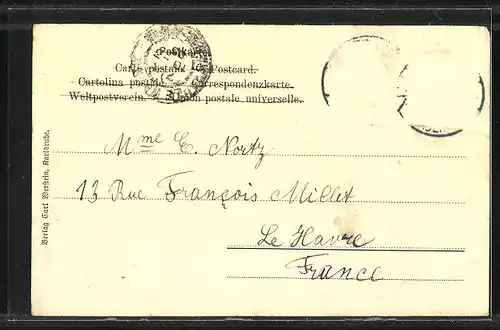 Postkarte
Carte postale Postcard.
Cartolina postale Correspondenzkarte.
Weltpostverein. Union postale universelle.
Mme E. Nortz
13 Rue François Millet
Le Havre
France
Verlag Carl Werstein, Karlsruhe.